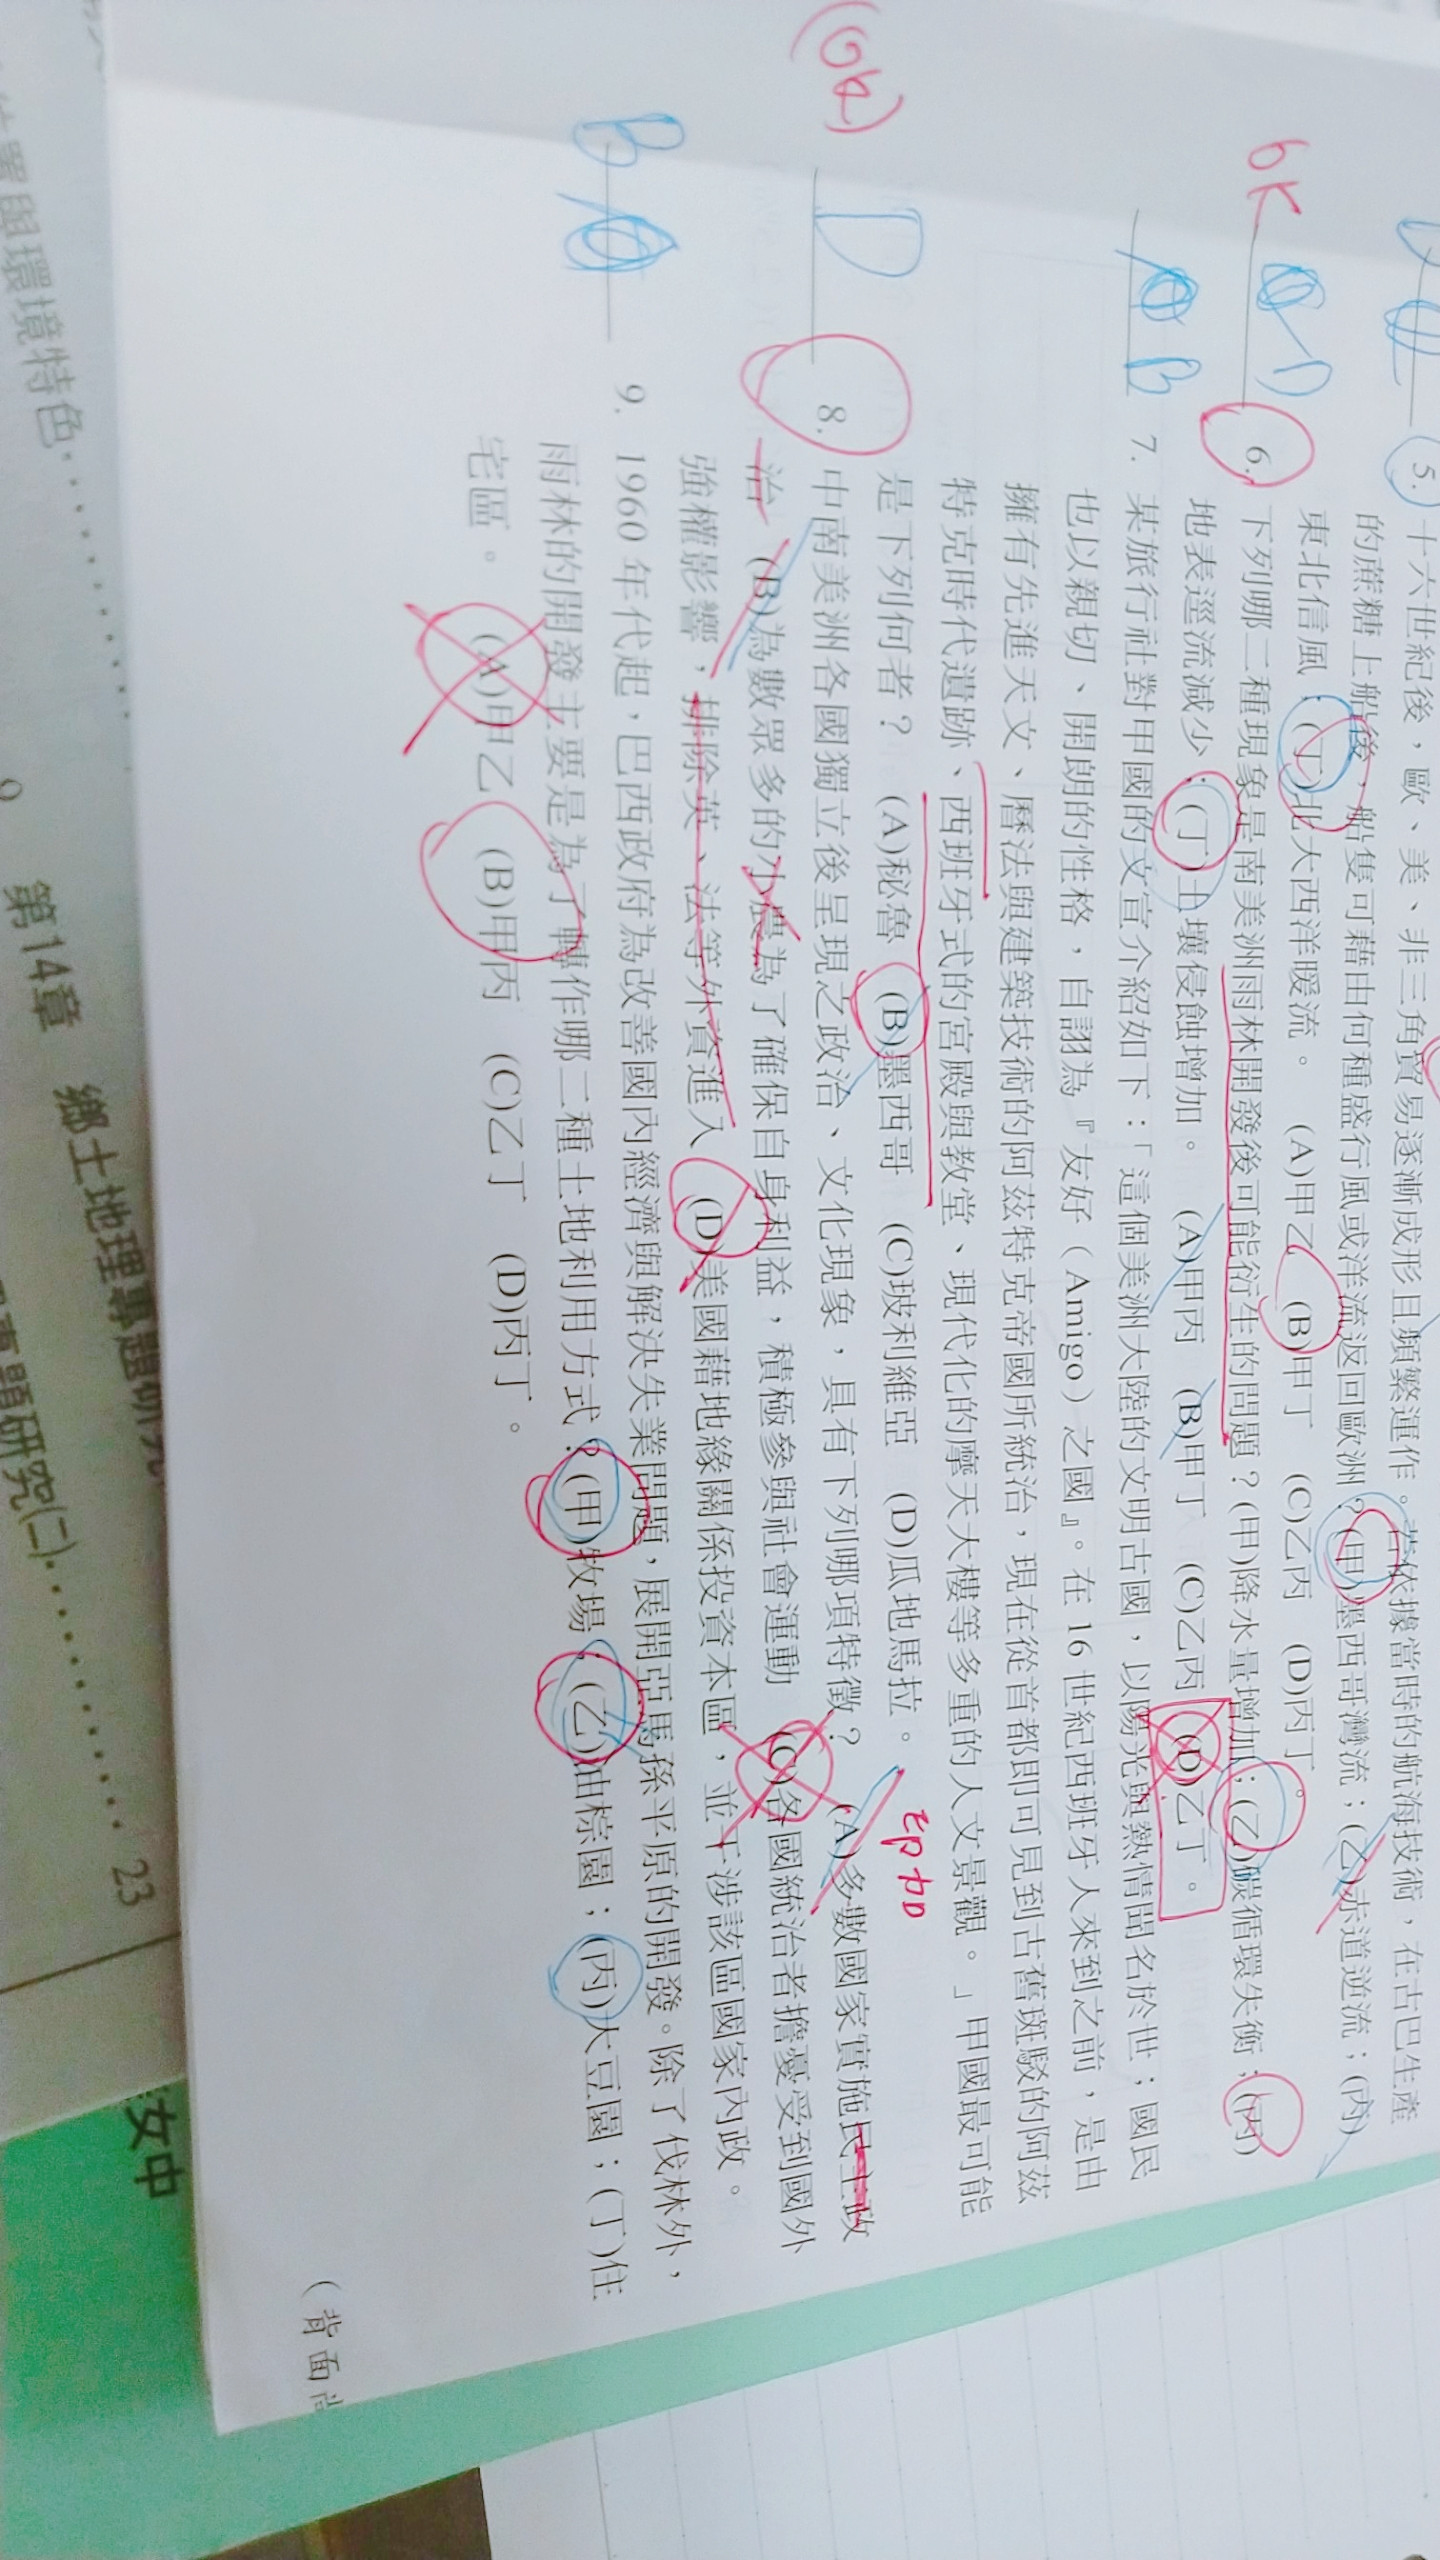 5. 十六世紀後，歐、美、非三角貿易逐漸成形且頻繁運作。若依據當時的航海技術，在古巴生產
的蔗糖上船後，船隻可藉由何種盛行風或洋流返回歐洲？(甲)墨西哥灣流；(乙)赤道逆流；(丙)
東北信風；(丁)北大西洋暖流。 (A)甲乙 (B)甲丁 (C)乙丙 (D)丙丁。
bk
D
6. 下列哪二種現象是南美洲雨林開發後可能衍生的問題？(甲)降水量增加；(乙)碳循環失衡；(丙)
地表逕流減少；(丁)土壤侵蝕增加。 (A)甲丙 (B)甲丁 (C)乙丙 (D)乙丁。
B
7. 某旅行社對甲國的文宣介紹如下：「這個美洲大陸的文明古國，以陽光與熱情聞名於世；國民
也以親切、開朗的性格，自詡為『友好（Amigo）之國』。在 16 世紀西班牙人來到之前，是由
擁有先進天文、曆法與建築技術的阿茲特克帝國所統治，現在從首都即可見到古舊斑駁的阿茲
特克時代遺跡、西班牙式的宮殿與教堂、現代化的摩天大樓等多重的人文景觀。」甲國最可能
是下列何者？ (A)秘魯 (B)墨西哥 (C)玻利維亞 (D)瓜地馬拉。
印加
D
8. 中南美洲各國獨立後呈現之政治、文化現象，具有下列哪項特徵？ (A)多數國家實施民主政
治 (B)為數眾多的小農為了確保自身利益，積極參與社會運動 (C)各國統治者擔憂受到國外
強權影響，排除英、法等外資進入 (D)美國藉地緣關係投資本區，並干涉該區國家內政。
B
9. 1960 年代起，巴西政府為改善國內經濟與解決失業問題，展開亞馬孫平原的開發。除了伐林外，
雨林的開發主要是為了轉作哪二種土地利用方式？(甲)牧場；(乙)油棕園；(丙)大豆園；(丁)住
宅區。 (A)甲乙 (B)甲丙 (C)乙丁 (D)丙丁。
（背面尚
置與環境特色
9 第14章 鄉土地理專題研究
專題研究(二) 23
女中